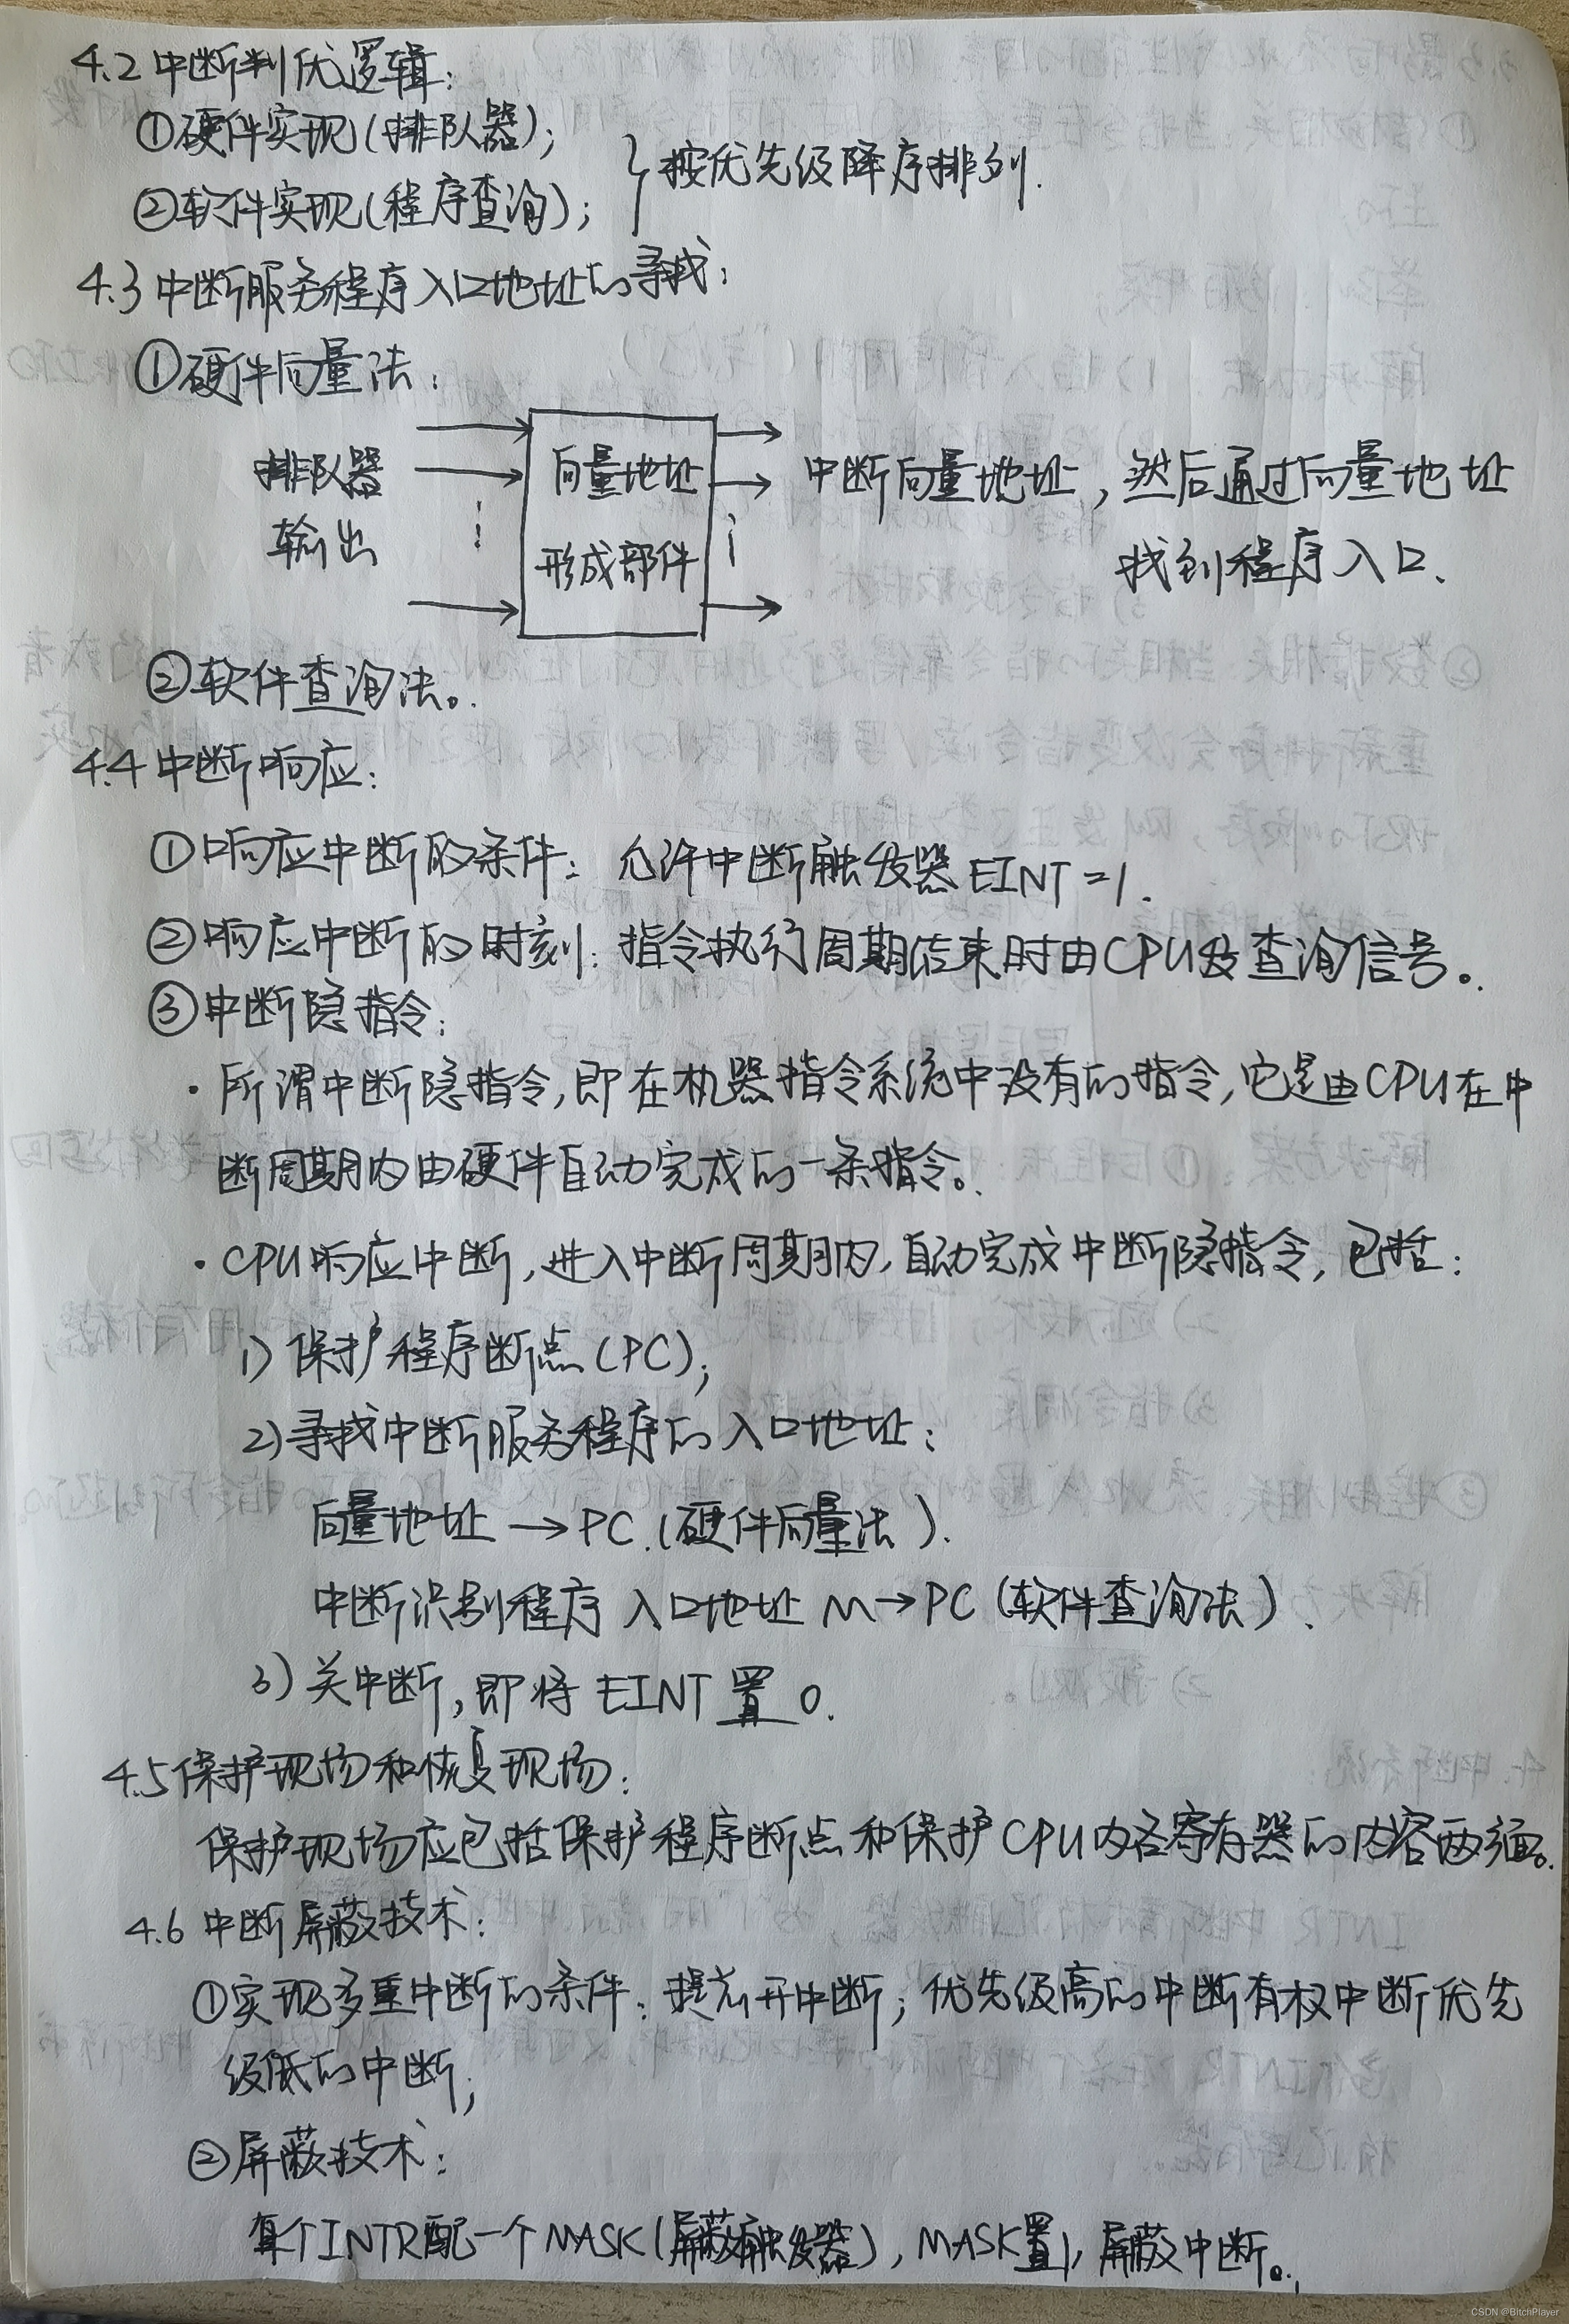 4.2 中断判优逻辑:
①硬件实现(排队器);
②软件实现(程序查询);
按优先级降序排列.
4.3 中断服务程序入口地址的寻找:
①硬件向量法:
排队器
输出
向量地址
形成部件
中断向量地址,然后通过向量地址
找到程序入口.
②软件查询法。
4.4 中断响应:
①响应中断的条件: 允许中断触发器 EINT=1.
②响应中断的时刻: 指令执行周期结束时由CPU发查询信号。
③中断隐指令:
·所谓中断隐指令,即在机器指令系统中没有的指令,它是由CPU在中
断周期内由硬件自动完成的一条指令。
·CPU响应中断,进入中断周期内,自动完成中断隐指令,包括:
1) 保护程序断点(PC);
2) 寻找中断服务程序的入口地址:
向量地址→PC.(硬件向量法).
中断识别程序 入口地址 M→PC (软件查询法).
3) 关中断,即将 EINT 置 0.
4.5 保护现场和恢复现场:
保护现场应包括保护程序断点和保护CPU内各寄存器的内容两个方面。
4.6 中断屏蔽技术:
①实现多重中断的条件: 提前开中断;优先级高的中断有权中断优先
级低的中断;
②屏蔽技术:
每个INTR配一个MASK(屏蔽触发器),MASK置1,屏蔽中断。
CSDN @BitchPlayer